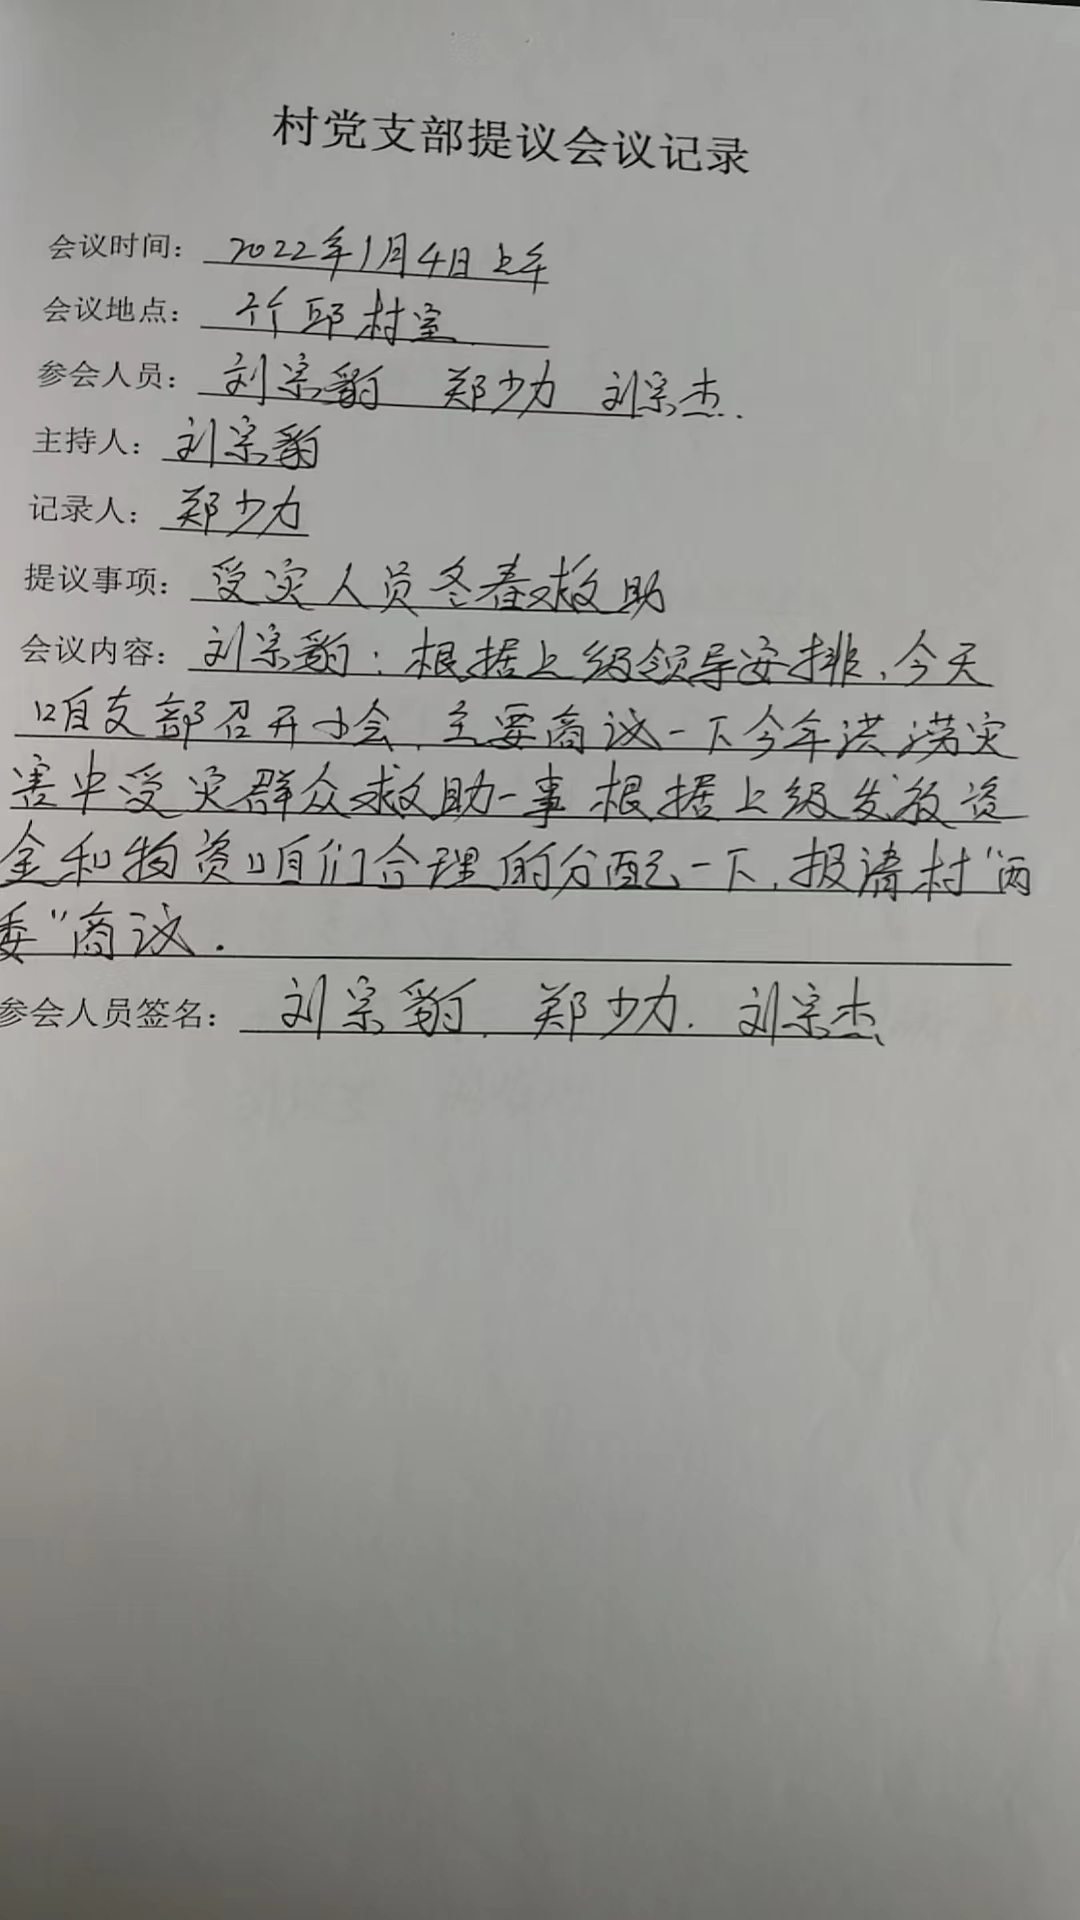 村党支部提议会议记录
会议时间：2022年1月4日上午
会议地点：竹邱村室
参会人员：刘宗豹 郑少力 刘宗杰.
主持人：刘宗豹
记录人：郑少力
提议事项：受灾人员冬春救助
会议内容：刘宗豹：根据上级领导安排，今天
咱支部召开小会，主要商议一下今年洪涝灾
害中受灾群众救助一事 根据上级发放资
金和物资咱们合理的分配一下，报请村“两
委”商议.
参会人员签名：刘宗豹. 郑少力. 刘宗杰